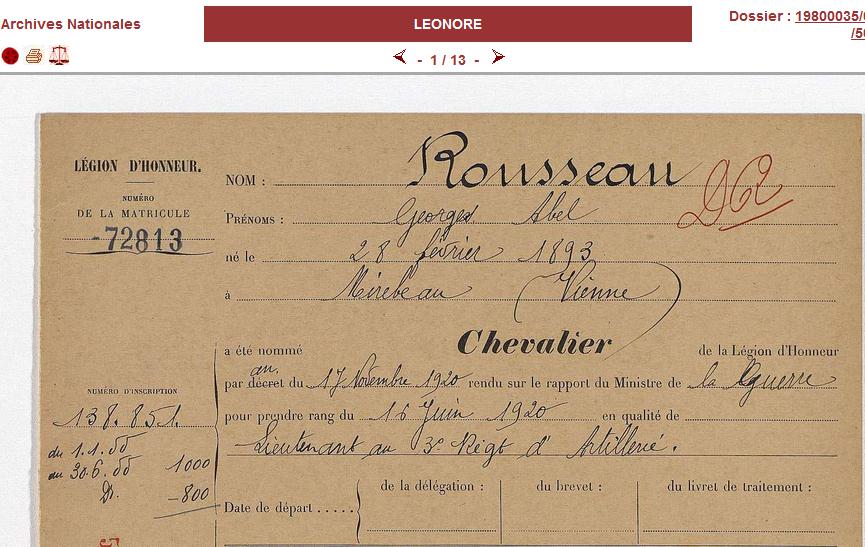 Archives Nationales
LEONORE
Dossier : 19800035/
- 1 / 13 -
LÉGION D'HONNEUR.
NUMÉRO
DE LA MATRICULE
-72813
NOM : Rousseau
PRÉNOMS : Georges Abel
né le 28 février 1893
à Mirebeau (Vienne)
a été nommé Chevalier de la Légion d'Honneur
par décret du 17 Novembre 1920 rendu sur le rapport du Ministre de la Guerre
pour prendre rang du 16 Juin 1920 en qualité de
Lieutenant au 3e Régt d'Artillerie.
NUMÉRO D'INSCRIPTION
138.851.
du 1.1.55
au 30.6.55 1000
-800
Date de départ.....
de la délégation :
du brevet :
du livret de traitement :